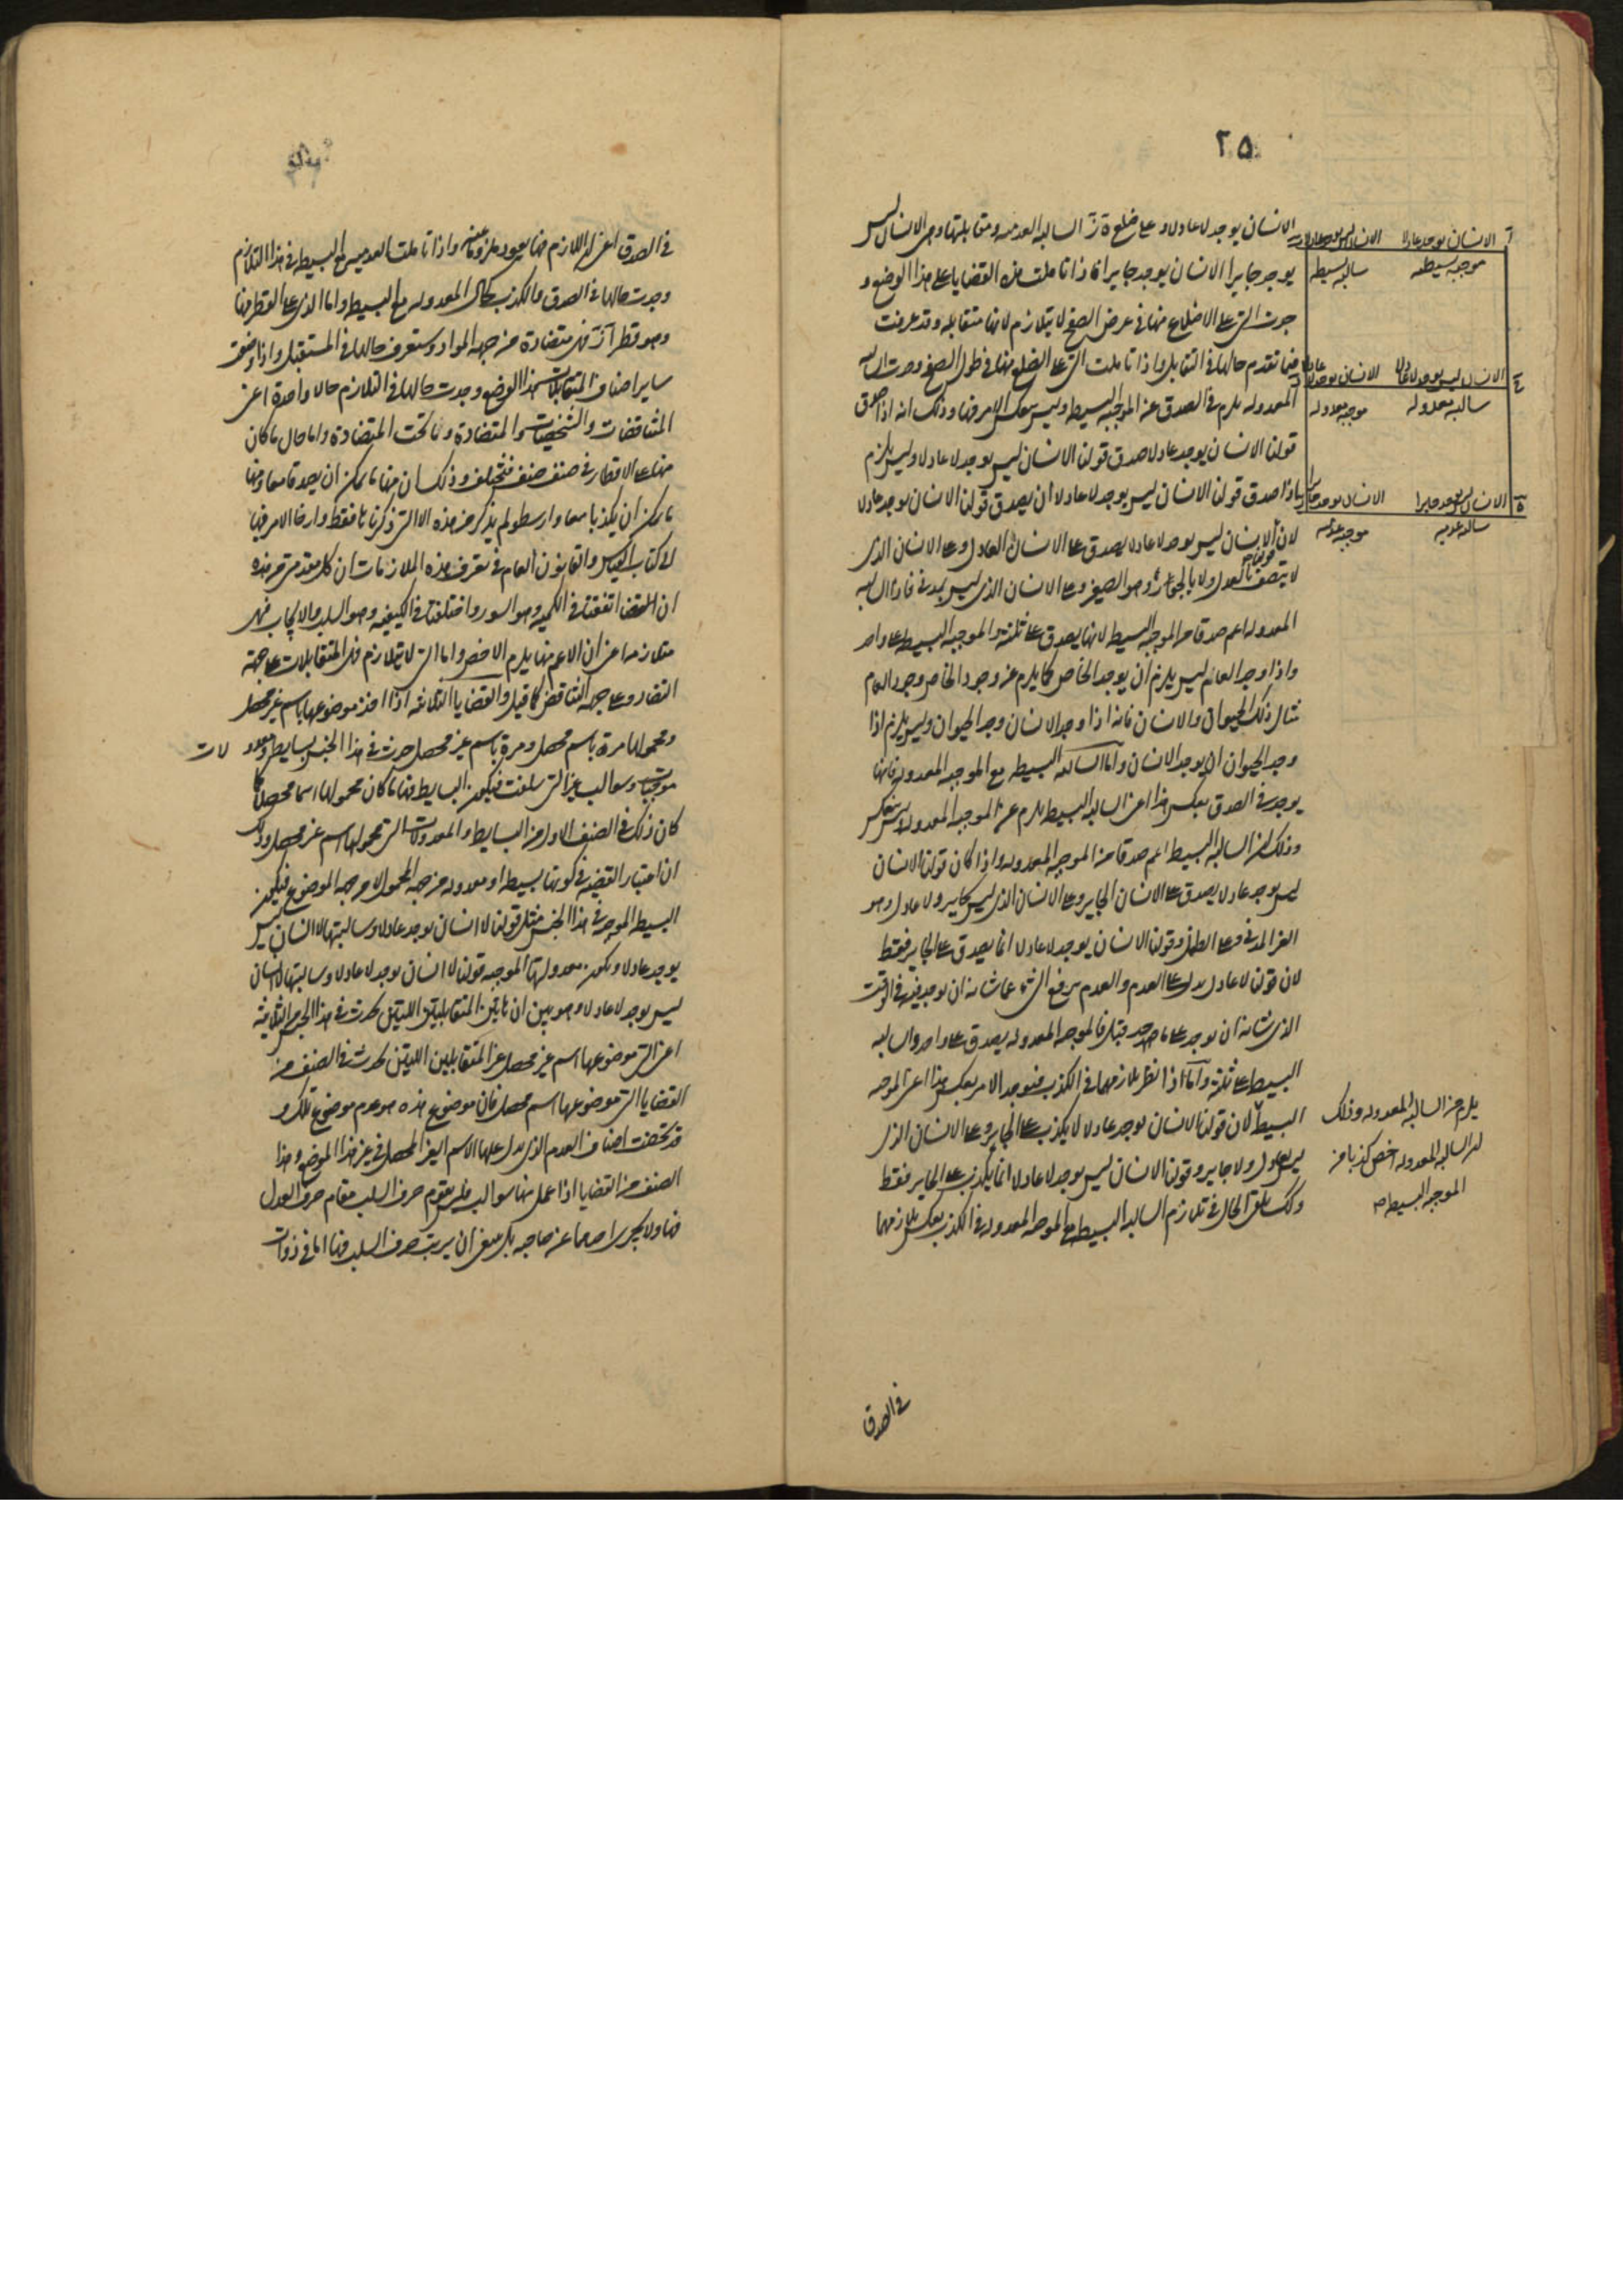 ٢٥
الانسان يوجد لا عادلا وعلى ضلع ة ز السالبة العدمية ومقابلتها وهي الانسان ليس
يوجد جايرا الانسان يوجد جايرا فاذا تاملت هذه القضايا على هذا الوضع و
جدت التي على الاضلاع منها في عرض الصفح لا يتلازم لانها متقابلة وقد عرفت
فيما تقدم حالها في التقابل واذا تاملت التي على الضلع منها في طول الصفح وجدت السالبة
المعدولة يلزم في الصدق عن الموجبة البسيطة وليس ينعكس الامر فيها وذلك انه اذا صدق
قولنا الانسان يوجد عادلا صدق قولنا الانسان ليس يوجد لا عادلا وليس يلزم
اذا صدق قولنا الانسان ليس يوجد لا عادلا ان يصدق قولنا الانسان يوجد عادلا
لان الانسان ليس يوجد لا عادلا يصدق على الانسان العادل وعلى الانسان الذي
لا يتصف بالعدل ولا بالجور وهو الصغير وعلى الانسان الذي ليس بمدني فاذا السالبة
المعدولة اعم صدقا من الموجبة البسيطة لانها يصدق على ثلثة والموجبة البسيطة على واحد
واذا وجد العام ليس يلزم ان يوجد الخاص كما يلزم عن وجود الخاص وجود العام
مثال ذلك الحيوان والانسان فانه اذا وجد الانسان وجد الحيوان وليس يلزم اذا
وجد الحيوان ان يوجد الانسان واما السالبة البسيطة مع الموجبة المعدولة فانها
يوجد في الصدق بعكس هذا اعني السالبة البسيطة يلزم عن الموجبة المعدولة وليس ينعكس
وذلك ان السالبة البسيطة اعم صدقا من الموجبة المعدولة واذا كان قولنا الانسان
ليس يوجد عادلا يصدق على الانسان الجاير وعلى الانسان الذي ليس بجاير ولا عادل وهو
الغير المدني وعلى الطفل وقولنا الانسان يوجد لا عادلا انما يصدق على الجاير فقط
لان قولنا لا عادل يدل على العدم والعدم هو رفع الشي عما شانه ان يوجد فيه في الوقت
الذي شانه ان يوجد على ما حد قبل فالموجبة المعدولة يصدق على واحد والسالبة
البسيطة على ثلثة واما اذا نظر تلازمهما في الكذب فيوجد الامر بعكس هذا اعني الموجبة
البسيطة لان قولنا الانسان يوجد عادلا يكذب على الجاير وعلى الانسان الذي
ليس بعادل ولا جاير وقولنا الانسان ليس يوجد لا عادلا انما يكذب على الجاير فقط
وكذلك يلقى الحال في تلازم السالبة البسيطة مع الموجبة المعدولة في الكذب بعكس تلازمهما
في الصدق
الانسان يوجد عادلا
الانسان ليس يوجد عادلا
موجبة بسيطة
سالبة بسيطة
الانسان ليس يوجد لا عادلا
الانسان يوجد لا عادلا
سالبة معدولة
موجبة معدولة
الانسان ليس يوجد جايرا
الانسان يوجد جايرا
سالبة عدمية
موجبة عدمية
يلزم من السالبة المعدولة وذلك
ان السالبة المعدولة اخص كذبا من
الموجبة البسيطة صح
في الصدق اعني ان اللازم هنا يعود ملزوما عنه واذا تاملت العدمية مع البسيطة في هذا التلازم
وجدت حالها في الصدق والكذب كحال المعدولة مع البسيطة واما الذي على القطر منها
وهو قطر آ ز فهي متضادة من جهة المواد وستعرف حالها في المستقبل واذا وضعت
ساير اصناف المتقابلات هذا الوضع وجدت حالها في التلازم حالا واحدة اعني
المتناقضات والشخصيات والمتضادة وما تحت المتضادة واما حال ما كان
منها على الاقطار في صنف صنف فمختلف وذلك ان منها ما يمكن ان يصدقا معا ومنها
ما يمكن ان يكذبا معا وارسطو لم يذكر من هذه الا التي ذكرناها فقط وارجا الامر فيها
الى كتاب القياس والقانون العام في تعرف هذه الملازمات ان كل مقدمتين من هذه
ان القضايا اتفقتا في الكمية وهو السور واختلفتا في الكيفية وهو السلب والايجاب فهي
متلازمة اعني ان الاعم منها يلزم الاخص واما التي لا تتلازم فهي المتقابلات على جهة
التضاد وعلى جهة التناقض كما قيل والقضايا الثلاثة اذا اخذ موضوعها باسم غير محصل
ومحمولها مرة باسم محصل ومرة باسم غير محصل حدث في هذا الجنس بسايط ومعدو لات
موجبات وسوالب غير التي سلفت فيكون البسايط منها ما كان محمولها اسما محصلا كما
كان ذلك في الصنف الاول من البسايط والمعدولات التي محمولها اسم غير محصل وذلك
ان اعتبار القضية في كونها بسيطة او معدولة من جهة المحمول لا من جهة الموضوع فيكون
البسيطة الموجبة في هذا الجنس مثل قولنا لا انسان يوجد عادلا وسالبتها لا انسان ليس
يوجد عادلا ويكون معدولتها الموجبة قولنا لا انسان يوجد لا عادلا وسالبتها لا انسان
ليس يوجد لا عادلا وهو بين ان هاتين المتقابلتين اللتين تحدث في هذا الجنس الثلاثية
اعني التي موضوعها اسم غير محصل غير المتقابلين اللتين تحدث في الصنف من
القضايا التي موضوعها اسم محصل فان موضوع هذه هو عدم موضوع تلك و
قد تلخصت اصناف العدم الذي يدل عليها الاسم الغير المحصل في غير هذا الموضع وهذا
الصنف من القضايا اذا عمل منها سوالب فليس يقوم حرف السلب مقام حرف العدل
منها ولا يجزي احدهما عن صاحبه بل ينبغي ان يرتب حرف السلب فيها اما في ذوات